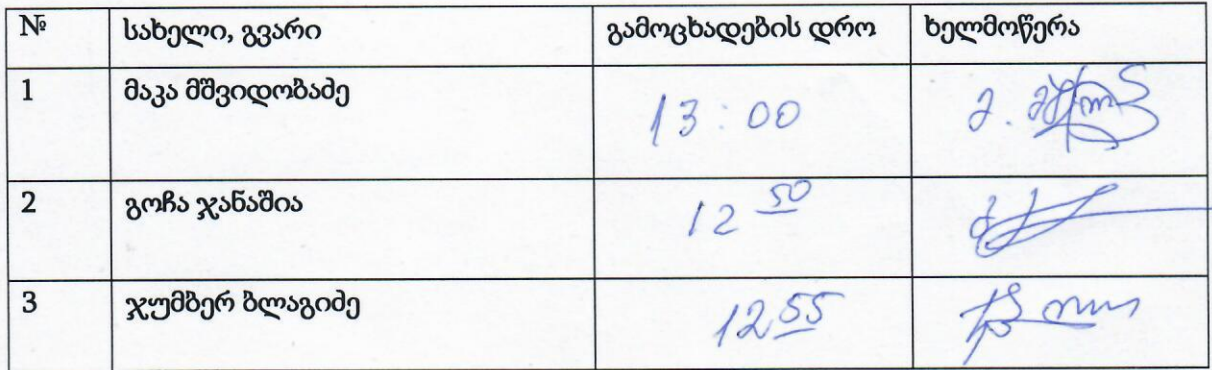 № სახელი, გვარი გამოცხადების დრო ხელმოწერა
1 მაკა მშვიდობაძე 13:00
2 გოჩა ჯანაშია 12 50
3 ჯუმბერ ბლაგიძე 12 55